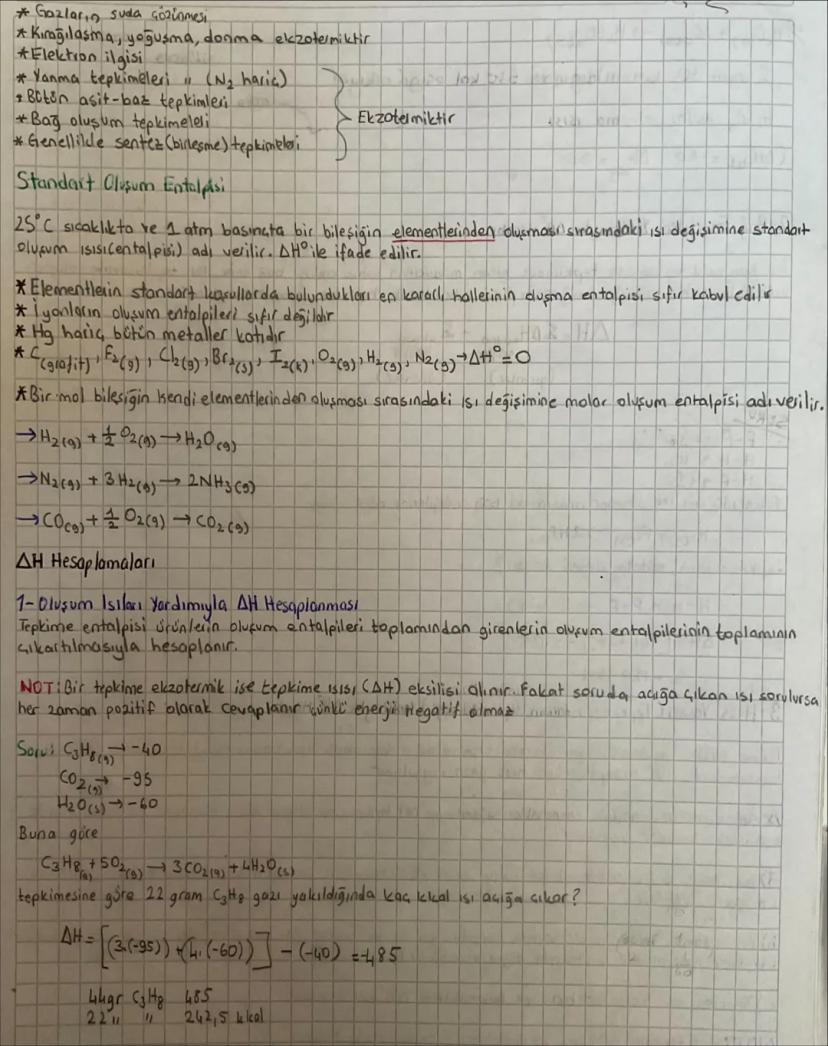 * Gazların suda çözünmesi
* Kırağılaşma, yoğuşma, donma ekzotermiktir
* Elektron ilgisi
* Yanma tepkimeleri " (N₂ hariç)
* Bütün asit-baz tepkimleri
* Bağ oluşum tepkimeleri
* Genellikle sentez (birleşme) tepkimeleri
Ekzotermiktir
Standart Oluşum Entalpisi
25°C sıcaklıkta ve 1 atm basınçta bir bileşiğin elementlerinden oluşması sırasındaki ısı değişimine standart
oluşum ısısı(entalpisi) adı verilir. ΔH° ile ifade edilir.
* Elementlerin standart koşullarda bulundukları en kararlı hallerinin oluşma entalpisi sıfır kabul edilir
* İyonların oluşum entalpileri sıfır değildir
* Hg hariç bütün metaller katıdır
* C(grafit), F₂(g), Cl₂(g), Br₂(s), I₂(k), O₂(g), H₂(g), N₂(g) → ΔH°=0
* Bir mol bileşiğin kendi elementlerinden oluşması sırasındaki ısı değişimine molar oluşum entalpisi adı verilir.
→ H₂(g) + 1/2 O₂(g) → H₂O(g)
→ N₂(g) + 3H₂(g) → 2NH₃(g)
→ CO(g) + 1/2 O₂(g) → CO₂(g)
ΔH Hesaplamaları
1- Oluşum Isıları Yardımıyla ΔH Hesaplanması
Tepkime entalpisi ürünlerin oluşum entalpileri toplamından girenlerin oluşum entalpilerinin toplamının
çıkartılmasıyla hesaplanır.
NOT: Bir tepkime ekzotermik ise tepkime ısısı (ΔH) eksilisi alınır. Fakat soruda açığa çıkan ısı sorulursa
her zaman pozitif olarak cevaplanır çünkü enerji negatif olmaz
Soru: C₃H₈(g) → -40
CO₂(g) → -95
H₂O(s) → -60
Buna göre
C₃H₈(g) + 5O₂(g) → 3CO₂(g) + 4H₂O(s)
tepkimesine göre 22 gram C₃H₈ gazı yakıldığında kaç kkal ısı açığa çıkar?
ΔH = [(3.(-95)) + (4.(-60))] - (-40) = -485
44gr C₃H₈ 485
22 " " 242,5 kkal